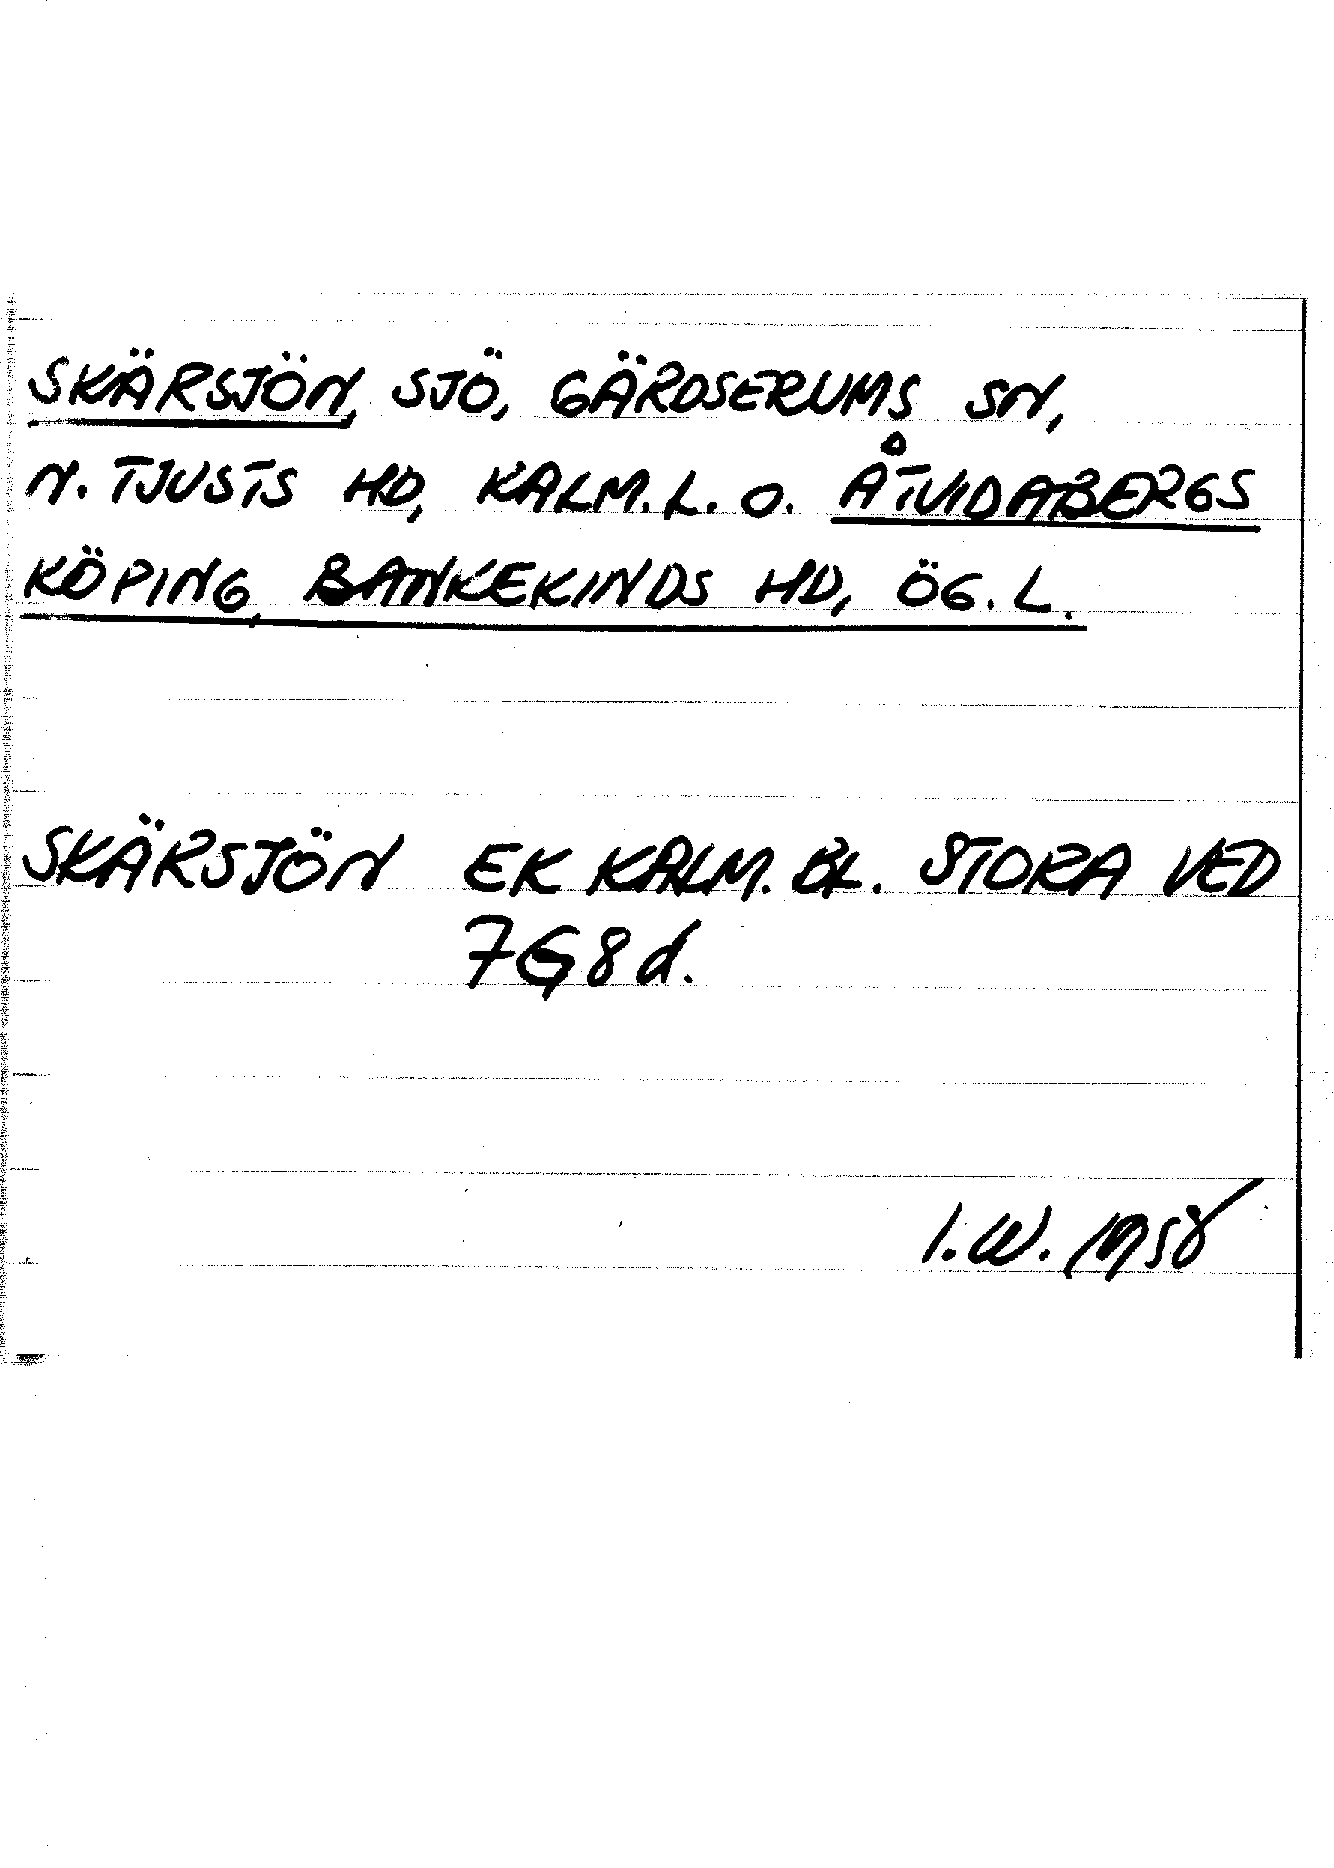 SKÄRSJÖN, SJÖ, GÄRDSERUMS SN,
N. TJUSTS HD, KALM. L. O. ÅTVIDABERGS
KÖPING, BANKEKINDS HD, ÖG. L.
SKÄRSJÖN EK KALM. BL. STORA VED
7G8d.
I.W. 1958